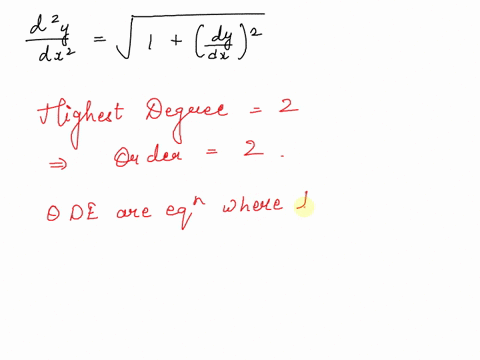 d²y/dx² = √(1 + (dy/dx)²)
Highest Degree = 2
⇒ Order = 2.
ODE are eqⁿ where